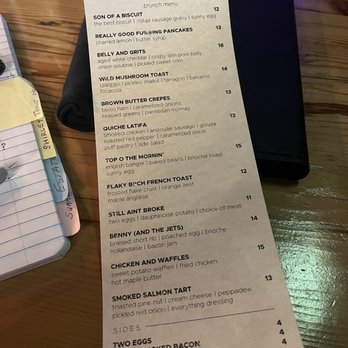 brunch menu
SON OF A BISCUIT 12
the best biscuit | 'nduja sausage gravy | sunny egg
REALLY GOOD FU%@ING PANCAKES 13
charred lemon | butter syrup
BELLY AND GRITS 18
aged white cheddar | crispy skin pork belly
onion soubise | pickled sweet corn
WILD MUSHROOM TOAST 14
taleggio | pickled shallot | tarragon | balsamic
focaccia
BROWN BUTTER CREPES 13
tasso ham | caramelized onions
braised greens | parmesan mornay
QUICHE LATIFA 13
smoked chicken | andouille sausage | gouda
roasted red pepper | caramelized onion
puff pastry | side salad
TOP O THE MORNIN' 15
english banger | baked beans | brioche toast
sunny egg
FLAKY B!*CH FRENCH TOAST 12
frosted flake crust | orange zest
maple anglaise
STILL AINT BROKE 11
two eggs | dauphinoise potato | choice of meat
BENNY (AND THE JETS) 14
braised short rib | poached egg | brioche
hollandaise | bacon jam
CHICKEN AND WAFFLES 15
sweet potato waffles | fried chicken
hot maple butter
SMOKED SALMON TART 13
toasted pine nut | cream cheese | peppadew
pickled red onion | everything dressing
SIDES
TWO EGGS 4
BACON 4
4